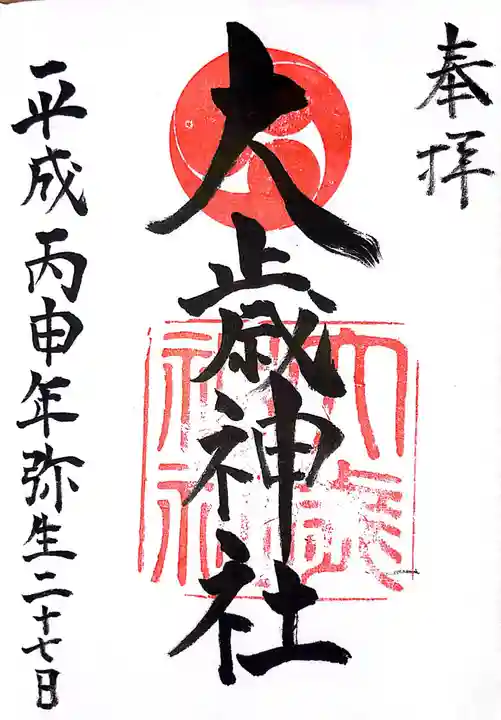 奉拝
大歳神社
大歳神社
平成丙申年弥生二十七日